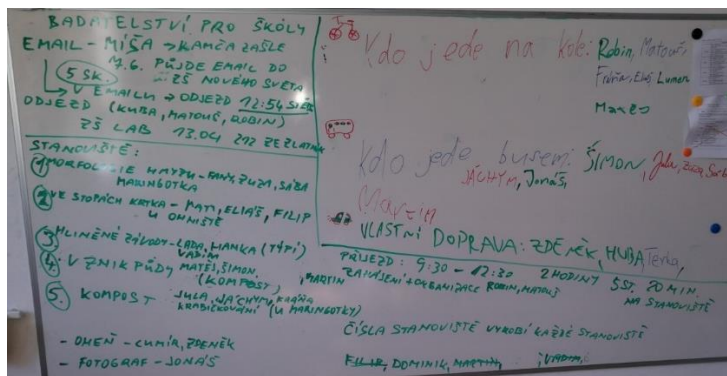 BADATELSTVÍ PRO ŠKOLY
EMAIL - MÍŠA → KAMČA ZAŠLE
7.6. PŮJDE EMAIL DO
5 SK. ZŠ NOVÉHO SVĚTA
V EMAILU → ODJEZD 12:54
ODJEZD (KUBA, MATOUŠ, ROBIN)
ZŠ LAB 13.04 212 ZE ZLATNÍK
STANOVIŠTĚ:
1 MORFOLOGIE HMYZU - FANY, ZUZA, SÁBA
MARINGOTKA
2 VE STOPÁCH KRTKA - MATI, ELIÁŠ, FILIP
U OHNIŠTĚ
3 HLINĚNÉ ZÁVODY - LADA, HANKA (TÝPÍ)
VADIM
4. VZNIK PŮDY MATĚJ, ŠIMON,
(KOMPOST), MARTIN
5. KOMPOST JULA, JÁCHYM,
KRABIČKOVÁNÍ (U MARINGOTKY)
- OHEŇ - LUMÍR, ZDENĚK
- FOTOGRAF - JONÁŠ
Kdo jede na kole: Robin, Matouš,
Eliáš, Lumír
Marek
Kdo jede busem: ŠIMON, Jula, Zuza,
JÁCHYM, Jonáš,
Martin
VLASTNÍ DOPRAVA: ZDENĚK, HUBA, Terka,
PŘÍJEZD: 9:30 - 12:30 2 HODINY 5 ST. 20 MIN.
ZAHÁJENÍ + ORGANIZACE ROBIN, MATOUŠ NA STANOVIŠTĚ
ČÍSLA STANOVIŠTĚ VYROBÍ KAŽDÉ STANOVIŠTĚ
FILIP, DOMINIK, MARTIN, VADIM,